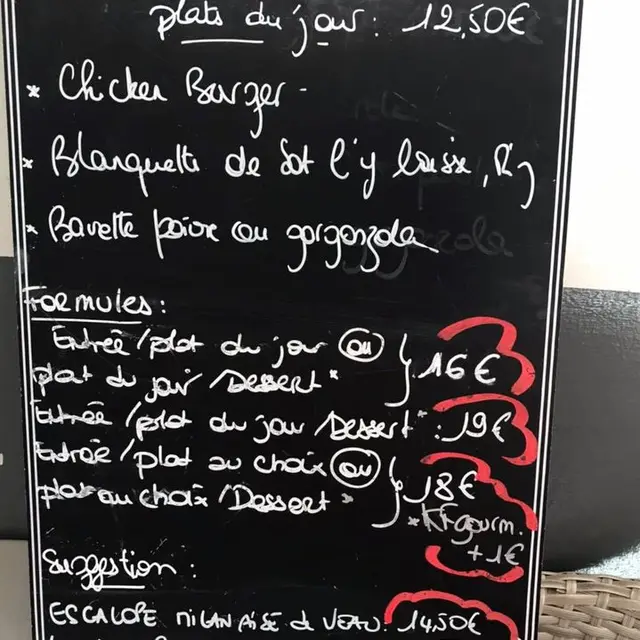 plats du jour : 12,50€
* Chicken Burger -
* Blanquette de Sot l'y laisse, Riz
* Bavette poivre ou gorgonzola
Formules :
Entrée / plat du jour ou
plat du jour / Dessert* } 16€
Entrée / plat du jour / Dessert* : 19€
Entrée / plat au choix ou
plat au choix / Dessert* } 18€
* Kfgourm.
+ 1€
Suggestion :
ESCALOPE MILANAISE de VEAU : 14,50€